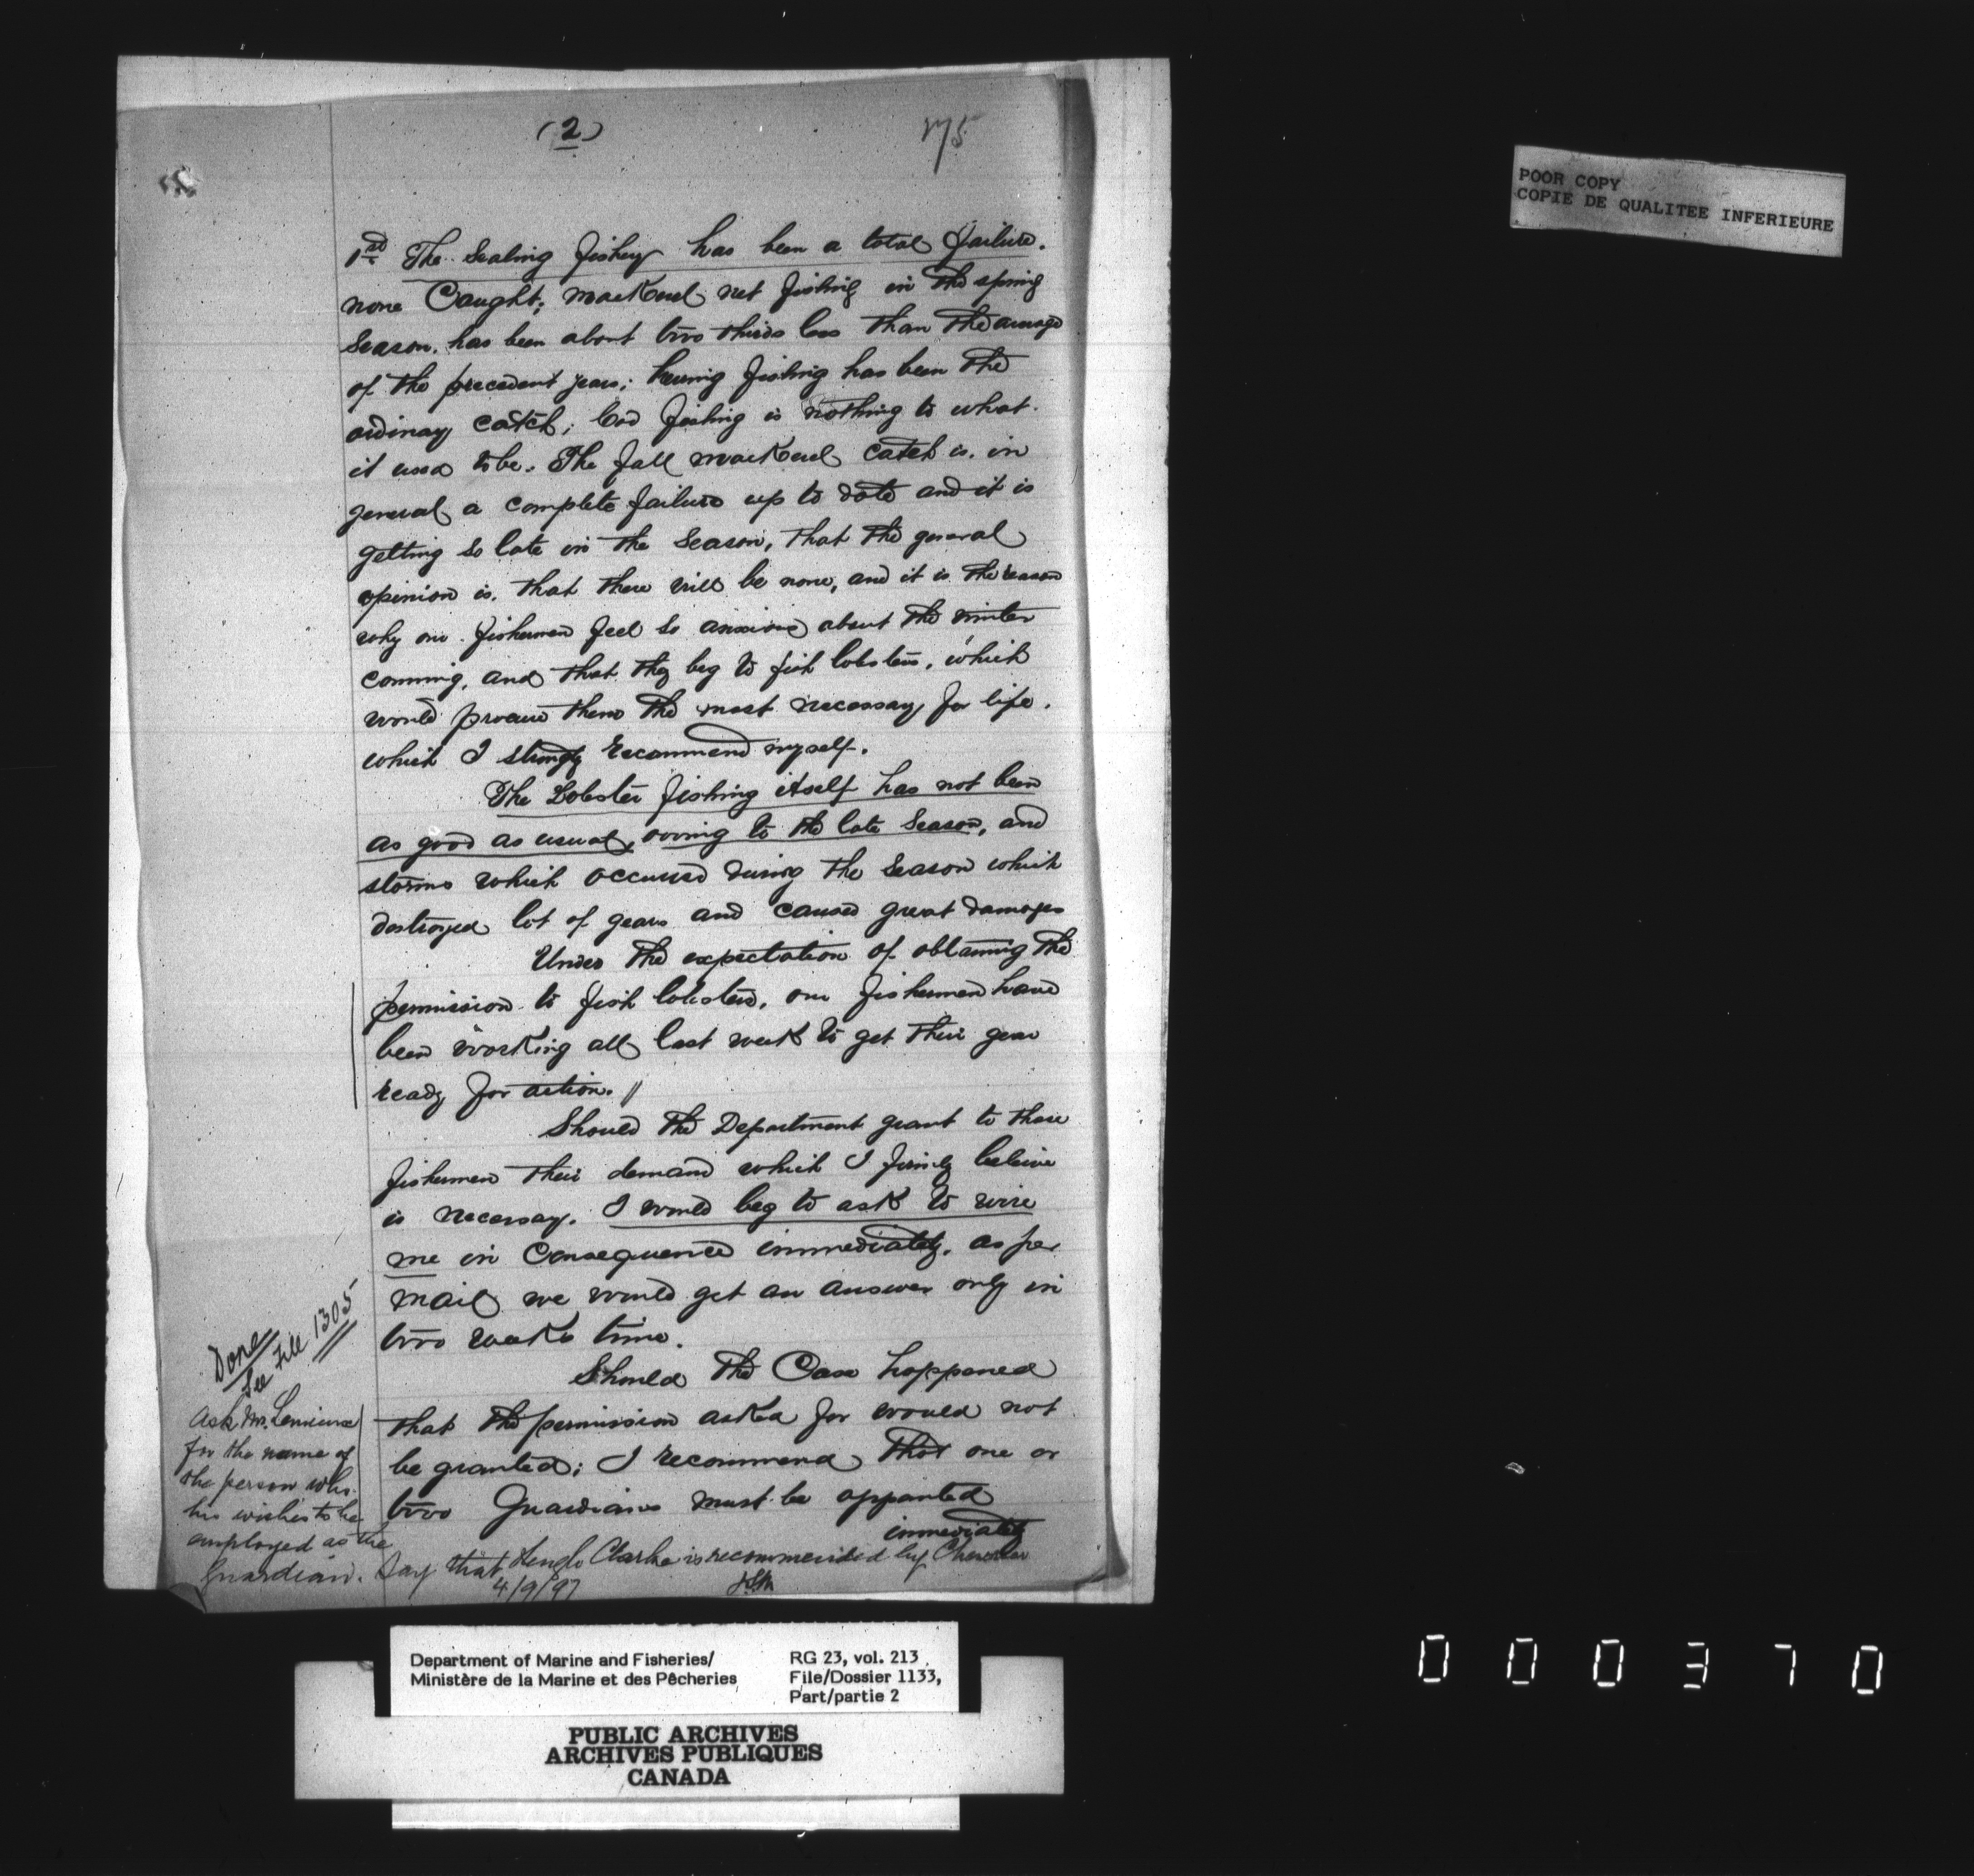 (2)
175
POOR COPY
COPIE DE QUALITEE INFERIEURE
1st The Sealing fishery has been a total failure.
none Caught; mackerel net fishing in the spring
Season. has been about two thirds less than the average
of the precedent years; herring fishing has been the
ordinary catch; Cod fishing is nothing to what
it used to be. The fall mackerel catch is. in
general a complete failure up to date and it is
getting so late in the Season, that the general
opinion is. that there will be none, and it is the reason
why our fishermen feel so anxious about the winter
comming, and that they beg to fish lobsters, which
would procure them the most necessary for life.
which I strongly recommend myself.
The Lobster fishing itself has not been
as good as usual, owing to the late Season, and
storms which occurred during the Season which
destroyed lot of gears and caused great damages
Under the expectation of obtaining the
permission to fish lobsters, our fishermen have
been working all last week to get their gear
ready for action. //
Should the Department grant to these
fishermen their demand which I firmly beleive
is necessary. I would beg to ask to wire
me in Consequence immediately. as per
mail we would get an answer only in
two weeks time.
Should the Case happened
that the permission asked for would not
be granted; I recommend that one or
two Guardians must be appointed
immediately
Done
See File 1305
Ask Mr. Lemieux
for the name of
the person who
he wishes to be
employed as the
Guardian. Say that Clarke is recommended by
4/9/97
Department of Marine and Fisheries/
Ministère de la Marine et des Pêcheries
RG 23, vol. 213
File/Dossier 1133,
Part/partie 2
PUBLIC ARCHIVES
ARCHIVES PUBLIQUES
CANADA
000370